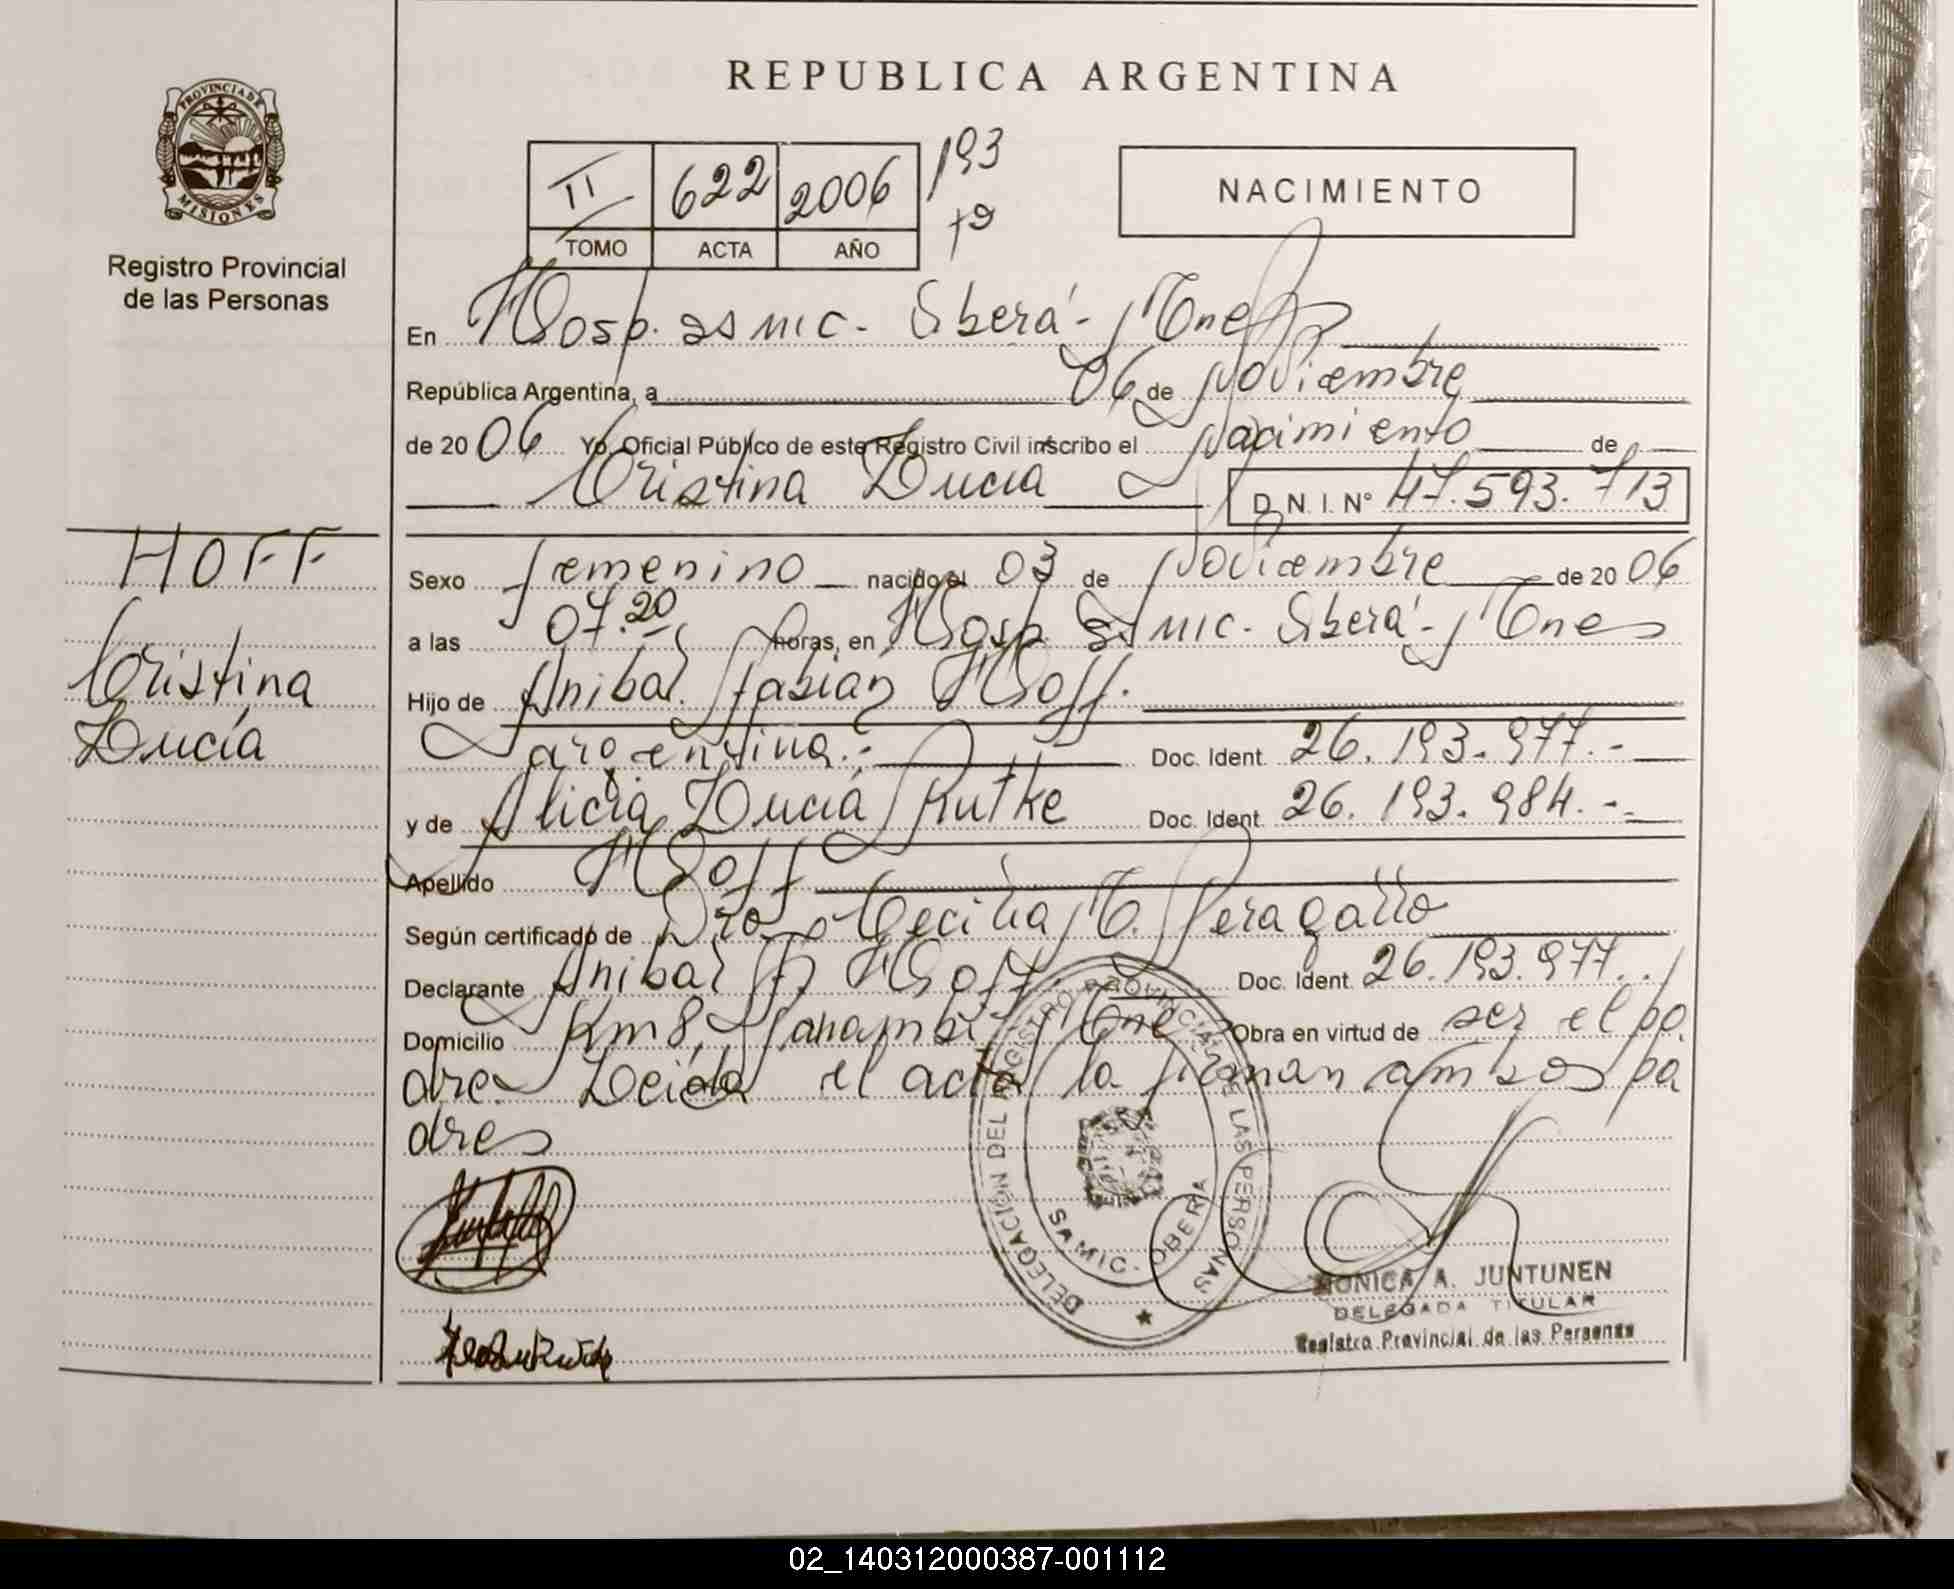 REPUBLICA ARGENTINA
PROVINCIA DE MISIONES
Registro Provincial
de las Personas
II 622 2006 193
TOMO ACTA AÑO
NACIMIENTO
En Hosp. Samic - Oberá - Mnes
República Argentina, a 06 de Noviembre
de 2006 Yo, Oficial Público de este Registro Civil inscribo el Nacimiento de
Cristina Lucia D.N.I. Nº 47.593.713
HOFF
Cristina
Lucía
Sexo Femenino nacido el 03 de Noviembre de 2006
a las 07.20 horas, en Hosp. Samic - Oberá - Mnes
Hijo de Anibal Fabián Hoff.
Argentina.- Doc. Ident. 26.193.977.-
y de Alicia Lucia Rutke Doc. Ident. 26.193.984.-
Apellido Hoff
Según certificado de Dra. Cecilia M. Peragallo
Declarante Anibal F. Hoff. Doc. Ident. 26.193.977.
Domicilio Km 8, Panambí Mnes Obra en virtud de ser el pa
dre. Leida el acta la firman ambos pa
dres
DELEGACIÓN DEL REGISTRO PROVINCIAL DE LAS PERSONAS
SAMIC - OBERA
MONICA A. JUNTUNEN
DELEGADA TITULAR
Registro Provincial de las Personas
02_140312000387-001112